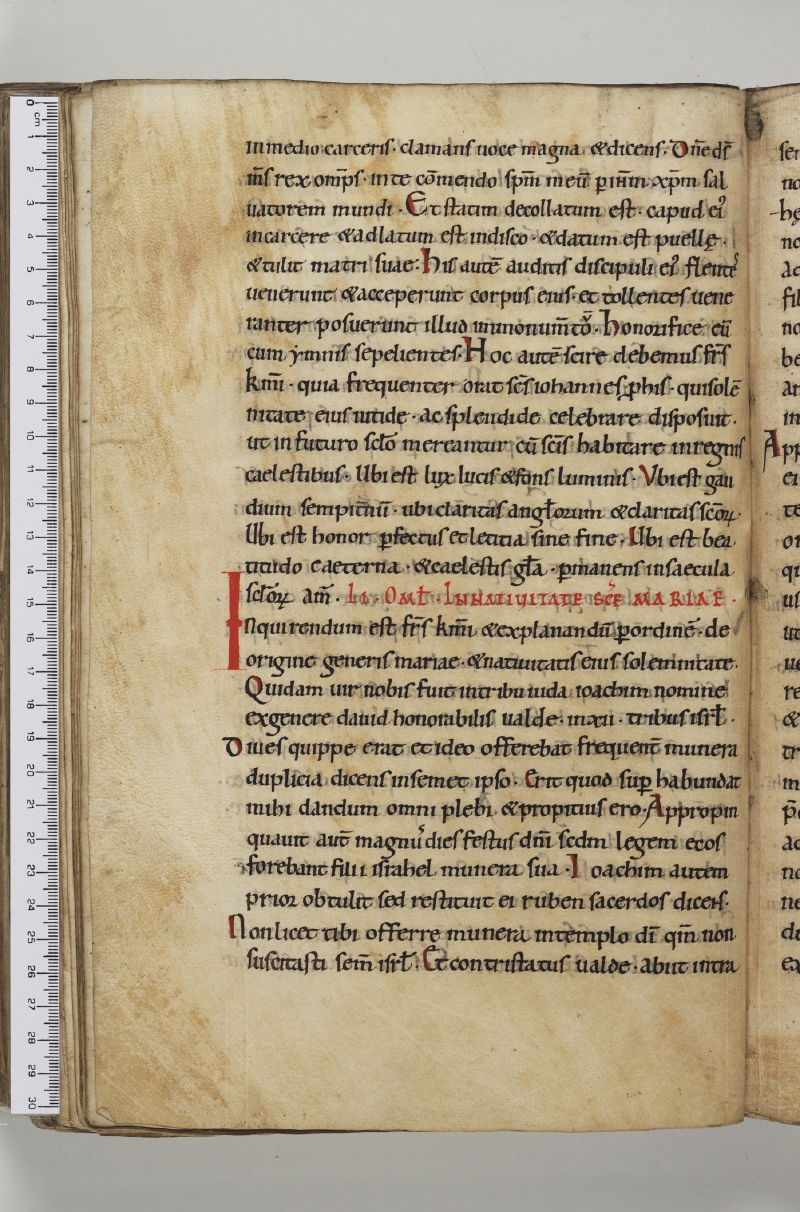 in medio carceris· clamans uoce magna· &dicens· Dn̄e ds̄
m̄s rex omp̄s· in te com̄endo sp̄m meū p iħm xp̄m sal
uatorem mundi· Et statim decollatum est· capud ei᾽
incarcere &adlatum est indisco· &datum est puellę·
&tulit matri suae· his autē auditis discipuli ei᾽ flentes
uenerunt &acceperunt corpus eius· et tollentes uene
ranter posuerunt illud honorifice eū
cum ymnis sepelientes· Hoc autē scire debemus fr̄s
km̄i· quia frequenter orat sc̄s iohannes p his· qui solē
nitate eius nitide· ac splendide celebrare disposuit·
ut in futuro scl̄o mereantur cū sc̄is habitare in regnis
caelestibus· Ubi est lux lucis &fons luminis· Vbi est gau
dium sempit̄nū· ubi claritas angl̄orum &claritas sc̄oꝝ·
Ubi est honor ꝑfectus et letitia sine fine· Ubi est bea
titudo caeterna· &caelestis gl̄a· ꝑmanens insaecula
scl̄oꝝ am̄· LI· OML̄· IN NATIVITATE SCĒ MARIAE·
Inquirendum est fr̄s km̄i &explanandū ꝑ ordinē· de
origine generis mariae· &natiuitatis eius solemnitate·
Quidam uir nobis fuit in tribu iuda ioachim nomine
exgenere dauid honorabilis ualde· in xii· tribus isrl̄·
Diues quippe erat et ideo offerebat frequent̄ munera
duplicia dicens insemet ipso· Erit quod suꝑ habundat
mihi dandum omni plebi &propitius ero· Appropin
quauit aut̄ magnus dies festus dn̄i scdm legem et os
forebant filii israhel munera sua· Ioachim autem
prior obtulit sed restituit ei ruben sacerdos dicens·
Non licet tibi offerre munera intemplo dī qm̄ non
suscitasti sem̄ isrl̄· Et contristatus ualde· abiit intra